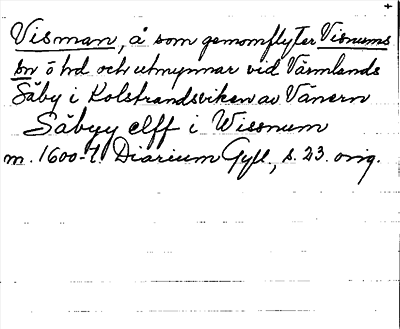 Visman, å som genomflyter Visnums
sn ö hd och utmynnar vid Värmlands
Säby i Kolstrandsviken av Vänern
Säbyy elff i Wissnum
m. 1600-t. Diarium Gyll., s. 23. orig.